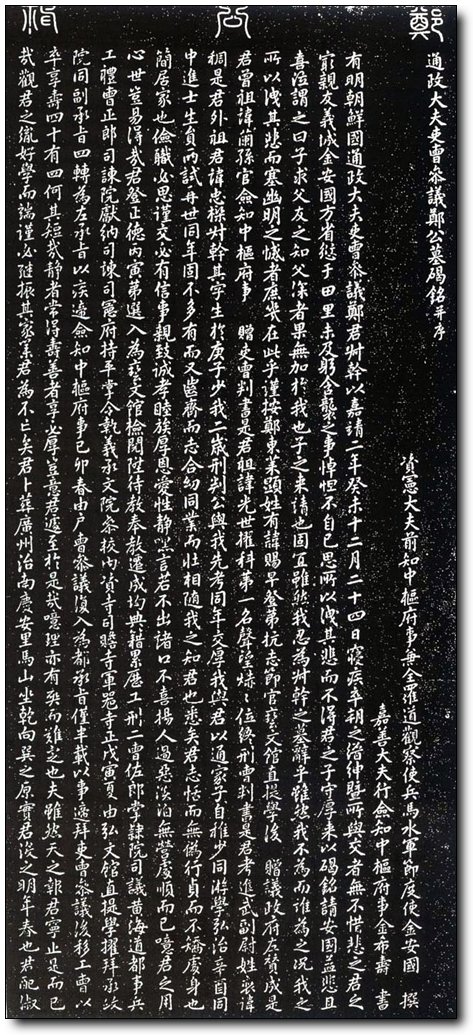 鄭公
通政大夫吏曹參議鄭公墓碣銘并序
資憲大夫前知中樞府事兼全羅道觀察使兵馬水軍節度使金安國 撰
嘉善大夫行僉知中樞府事金希壽 書
有明朝鮮國通政大夫吏曹參議鄭君艸幹以嘉靖二年癸未十二月二十四日寢疾卒朔之搢紳曁所與交者無不惜悲之君之
窮親友義城金安國方省愆于田里未及躬含襲之事悼怛不自已思所以洩其悲而不得君之子守厚來以碣銘請安國益悲且
喜泣謂之曰子求父友之知父深者果無加於我也子之來請也固宜雖然我忍為艸幹之墓辭乎雖然我不為而誰為之況我之
所以洩其悲而塞幽明之憾者庶幾在此乎謹按鄭東萊顯姓有諱賜早登第抗志節官藝文館直提學後 贈議政府左贊成是
君曾祖諱蘭孫官僉知中樞府事 贈吏曹判書是君祖諱光世擢科第一名聲瑩煒煒位終刑曹判書是君考進武副尉姓裵諱
稠是君外祖君諱忠樑艸幹其字生於庚子少我二歲刑判公與我先考同年交厚我與君以通家子自稚少同游學弘治辛酉同
中進士生員兩試再世同年固不多有而又齒齊而志合幼同業而壯相隨我之知君也悉矣君志恬而無僞行貞而不矯處身也
簡居家也儉職必思謹交必有信事親致誠孝睦族厚恩愛性靜默言若不出諸口不喜揚人過惡淡泊無營處順而已噫君之用
心世豈易得哉君登正德丙寅第選入為藝文館檢閱陞待敎奉敎遷成均典籍累歷工刑二曹佐郎掌隷院司議黃海道都事兵
工禮曹正郎司諫院獻納司諫司憲府持平掌令執義承文院參校內資寺司贍寺軍器寺正戊寅夏由弘文館直提學擢拜承政
院同副承旨四轉為左承旨以疾遞僉知中樞府事己卯春由戶曹參議復入為都承旨僅半載以事遞拜吏曹參議後移工曹以
卒享壽四十有四何其短哉靜者常得壽善者享必厚豈意君遽至於是哉噫理亦有舛而難諶也夫雖然天之報君寧止是而已
哉觀君之胤好學而端謹必能振其家業君為不亡矣君卜葬廣州治南慶安里馬山坐乾向巽之原實君沒之明年春也君配淑